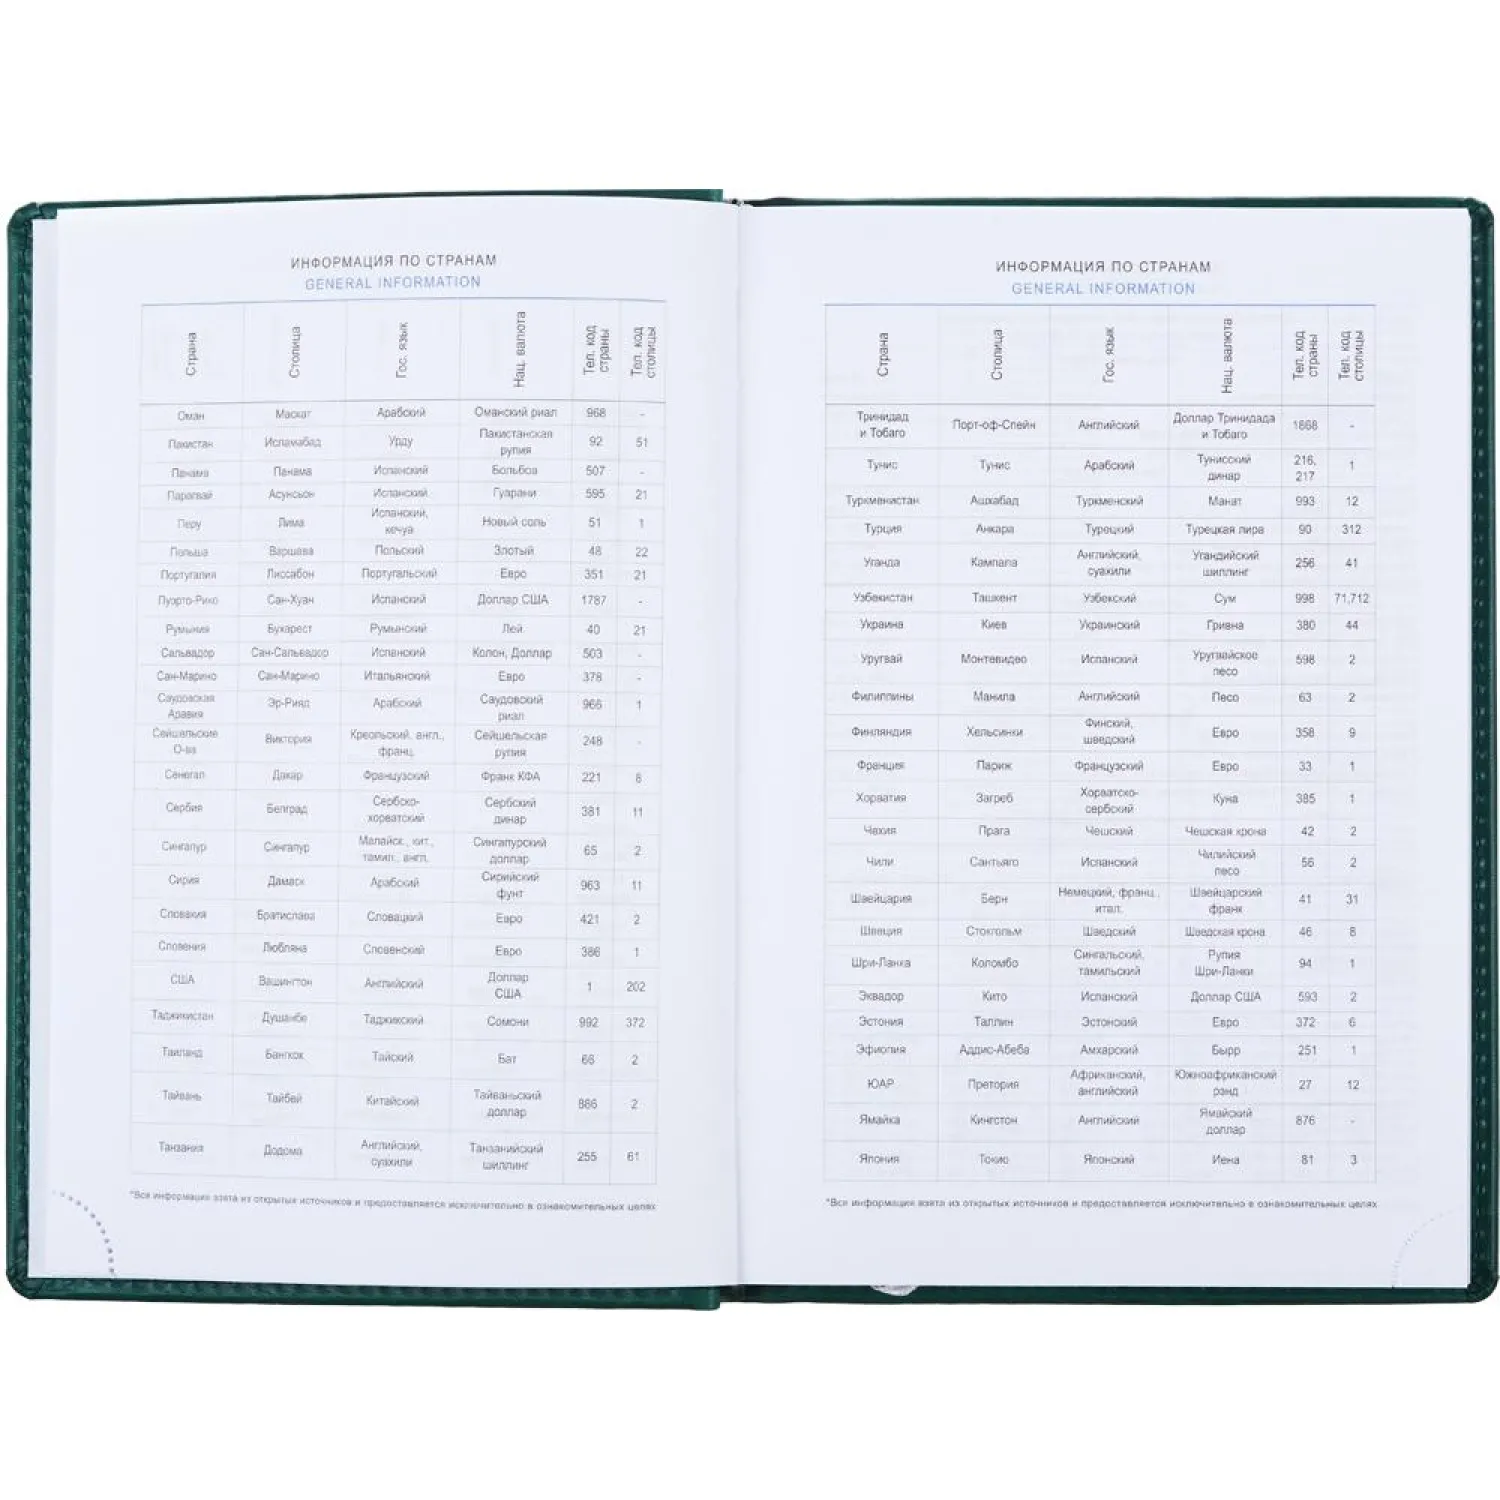 ИНФОРМАЦИЯ ПО СТРАНАМ
GENERAL INFORMATION
Страна Столица Гос. язык Нац. валюта Тел. код страны Тел. код столицы
Оман Маскат Арабский Оманский риал 968 -
Пакистан Исламабад Урду Пакистанская рупия 92 51
Панама Панама Испанский Больбоа 507 -
Парагвай Асунсьон Испанский Гуарани 595 21
Перу Лима Испанский, кечуа Новый соль 51 1
Польша Варшава Польский Злотый 48 22
Португалия Лиссабон Португальский Евро 351 21
Пуэрто-Рико Сан-Хуан Испанский Доллар США 1787 -
Румыния Бухарест Румынский Лей 40 21
Сальвадор Сан-Сальвадор Испанский Колон, Доллар 503 -
Сан-Марино Сан-Марино Итальянский Евро 378 -
Саудовская Аравия Эр-Рияд Арабский Саудовский риал 966 1
Сейшельские О-ва Виктория Креольский, англ., франц. Сейшельская рупия 248 -
Сенегал Дакар Французский Франк КФА 221 8
Сербия Белград Сербско-хорватский Сербский динар 381 11
Сингапур Сингапур Малайск., кит., тамил., англ. Сингапурский доллар 65 2
Сирия Дамаск Арабский Сирийский фунт 963 11
Словакия Братислава Словацкий Евро 421 2
Словения Любляна Словенский Евро 386 1
США Вашингтон Английский Доллар США 1 202
Таджикистан Душанбе Таджикский Сомони 992 372
Таиланд Бангкок Тайский Бат 66 2
Тайвань Тайбей Китайский Тайваньский доллар 886 2
Танзания Додома Английский, суахили Танзанийский шиллинг 255 61
*Вся информация взята из открытых источников и предоставляется исключительно в ознакомительных целях
ИНФОРМАЦИЯ ПО СТРАНАМ
GENERAL INFORMATION
Страна Столица Гос. язык Нац. валюта Тел. код страны Тел. код столицы
Тринидад и Тобаго Порт-оф-Спейн Английский Доллар Тринидада и Тобаго 1868 -
Тунис Тунис Арабский Тунисский динар 216, 217 1
Туркменистан Ашхабад Туркменский Манат 993 12
Турция Анкара Турецкий Турецкая лира 90 312
Уганда Кампала Английский, суахили Угандийский шиллинг 256 41
Узбекистан Ташкент Узбекский Сум 998 71,712
Украина Киев Украинский Гривна 380 44
Уругвай Монтевидео Испанский Уругвайское песо 598 2
Филиппины Манила Английский Песо 63 2
Финляндия Хельсинки Финский, шведский Евро 358 9
Франция Париж Французский Евро 33 1
Хорватия Загреб Хорватско-сербский Куна 385 1
Чехия Прага Чешский Чешская крона 42 2
Чили Сантьяго Испанский Чилийский песо 56 2
Швейцария Берн Немецкий, франц., итал. Швейцарский франк 41 31
Швеция Стокгольм Шведский Шведская крона 46 8
Шри-Ланка Коломбо Сингальский, тамильский Рупия Шри-Ланки 94 1
Эквадор Кито Испанский Доллар США 593 2
Эстония Таллин Эстонский Евро 372 6
Эфиопия Аддис-Абеба Амхарский Бырр 251 1
ЮАР Претория Африканский, английский Южноафриканский рэнд 27 12
Ямайка Кингстон Английский Ямайский доллар 876 -
Япония Токио Японский Иена 81 3
*Вся информация взята из открытых источников и предоставляется исключительно в ознакомительных целях